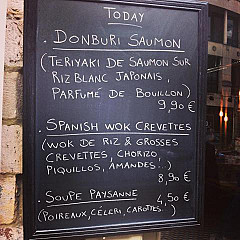 TODAY
. DONBURI SAUMON
(TERIYAKI DE SAUMON SUR
RIZ BLANC JAPONAIS,
PARFUMÉ DE BOUILLON)
9,90 €
. SPANISH WOK CREVETTES
(WOK DE RIZ & GROSSES
CREVETTES, CHORIZO,
PIQUILLOS, AMANDES...)
8,90 €
. SOUPE PAYSANNE 4,50 €
(POIREAUX, CÉLERI, CAROTTES...)